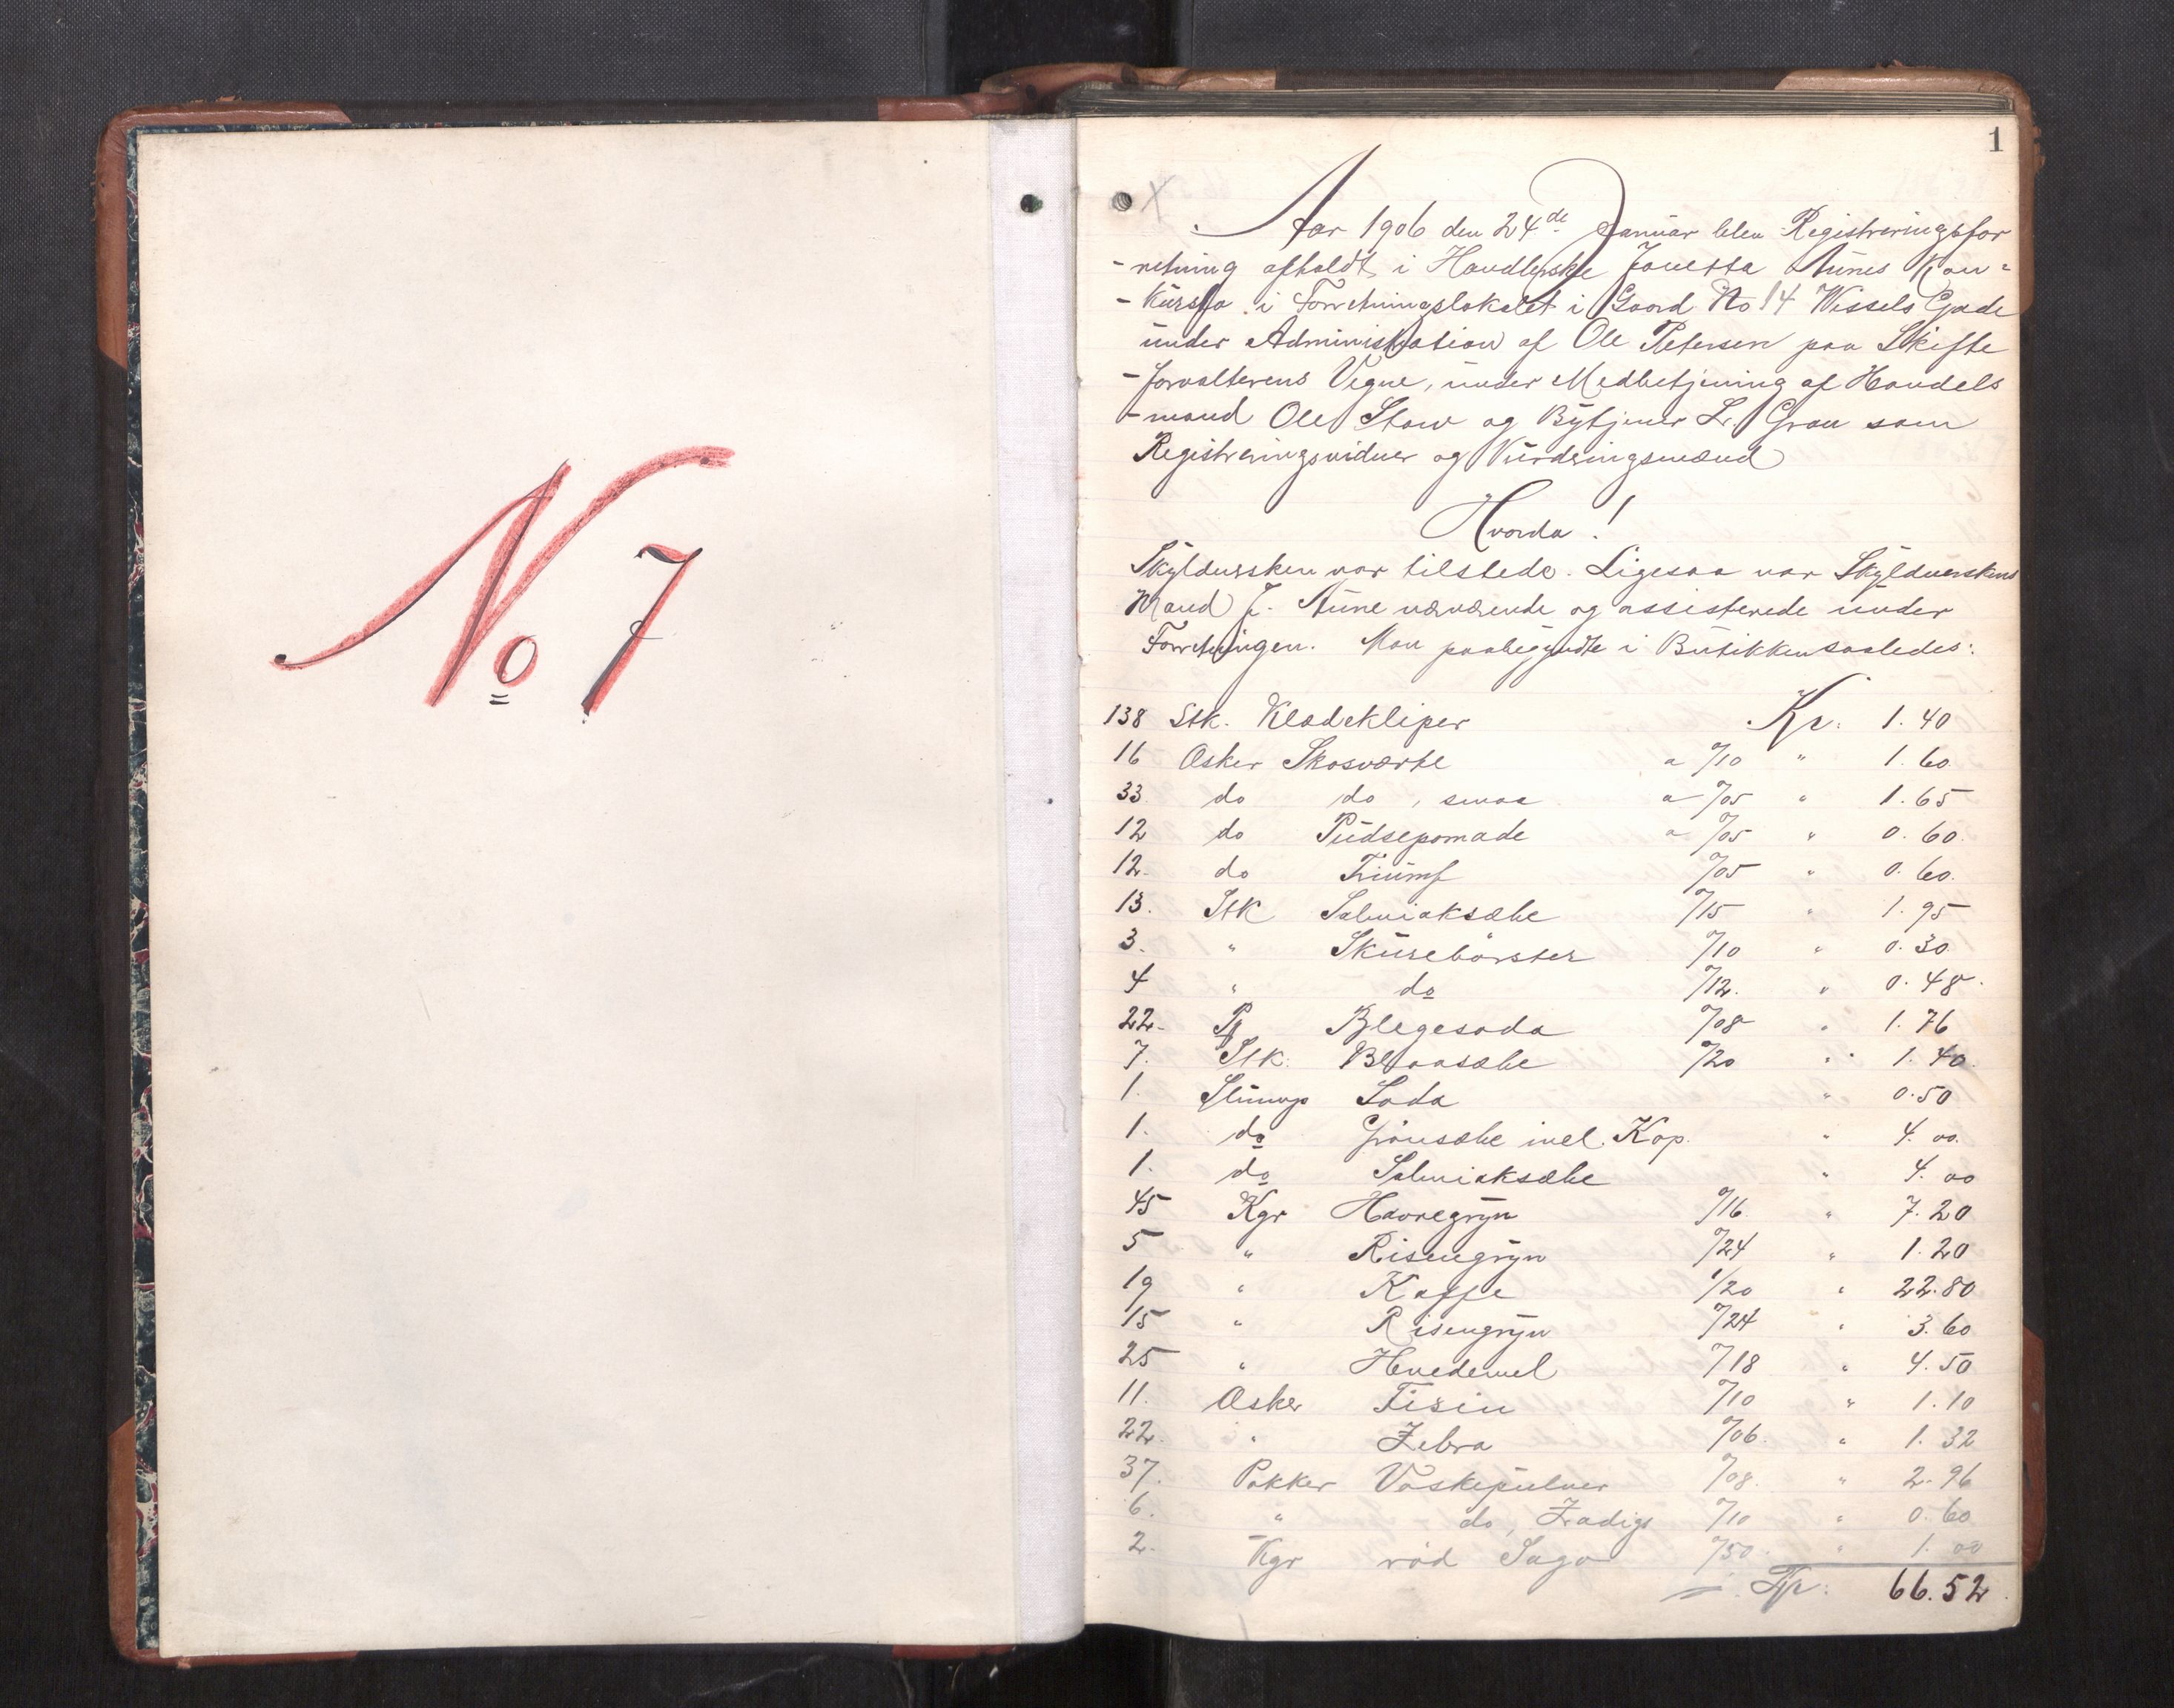 No 7
1
X
Aar 1906 den 24de Januar blev Registreringsfor
-retning afholdt i Handlerske Janetta Aunes Kon=
-kursbo i Forretningslokalet i Gaard No 14 Wessels Gade
under Administration af Ole Petersen paa Skifte
-forvalterens Vegne, under Medbetjening af Handels
-mand Ole Stav og Bytjener L. Gran som
Registreringsvidner og Vurderingsmænd
Hvorda!
Skyldnersken var tilstede. Ligesaa var Skyldnerskens
Mand J. Aune nærværende og assisterede under
Forretningen. Man paabegyndte i Butikken saaledes:
138 Stk. Klædekliper Kr. 1.40
16 Æsker Skosværte a 0/10 " 1.60
33 do do, smaa a 0/05 " 1.65
12 do Pudsepomade a 0/05 " 0.60
12. do Triumf 0/05 " 0.60
13. Stk Salmiaksæbe 0/15 " 1.95
3. " Skurebørster 0/10 " 0.30
4 " do 0/12. " 0.48.
22. Pk Blegesoda 0/08 " 1.76
7. Stk. Blaasæbe 0/20 " 1.40
1. Slump Soda " 0.50
1. do Grønsæbe incl. Kop. " 4.00.
1. do Salmiaksæbe " 4.00
45 Kgr Havregryn 0/16 " 7.20
5 " Risengryn 0/24 " 1.20
19 " Kaffe 1/20 " 22.80
15 " Risengryn 0/24 " 3.60
25 " Hvedemel 0/18 " 4.50
11. Æsker Fisin 0/10 " 1.10
22. " Zebra 0/06. " 1.32
37. Pakker Vaskepulver 0/08. " 2.96
6. " do, Zadigs 0/10 " 0.60
2. Kgr rød Sago 0/50. " 1.00
Tr. 66.52